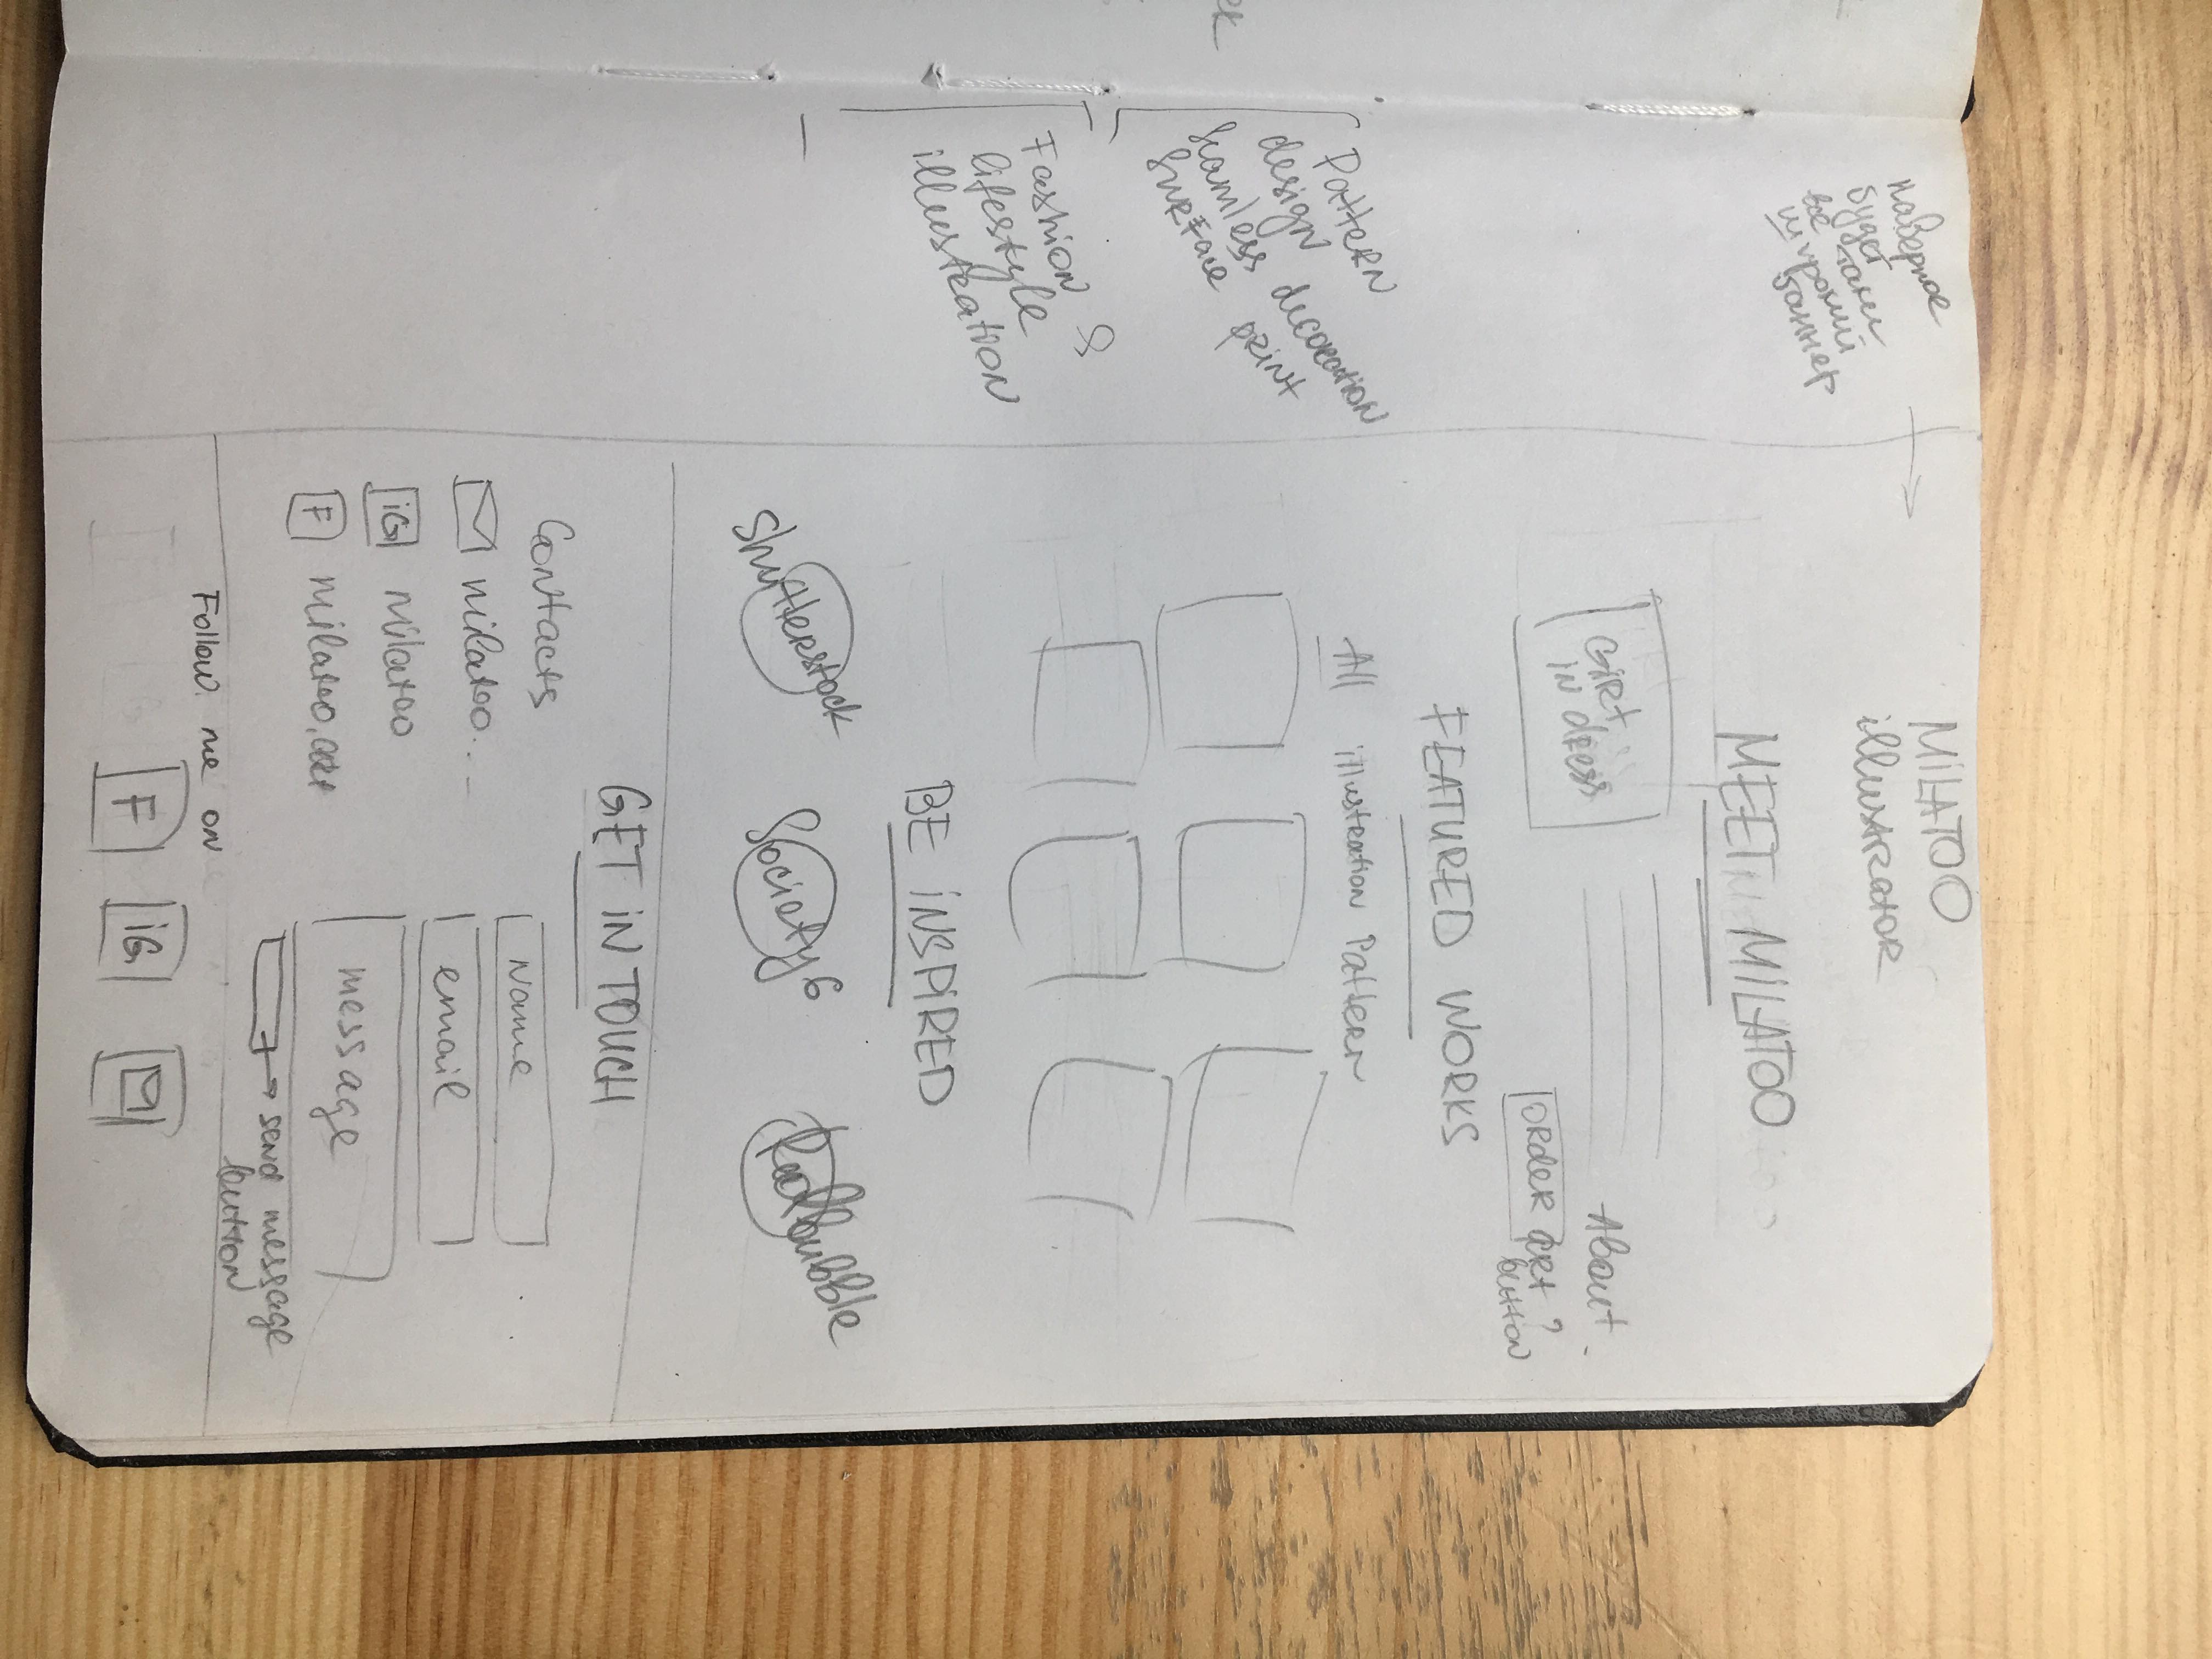 наверное
будет
все таки
широкий
баннер
MiLATOO
illustRatoR
MEET MiLATOO
GiRt
iN dRess
About
ORdeR ARt ?
button
FEATURED WORKS
All illustRation PatteRn
PatteRN
design
Seamless decoration
SuRFace pRiNt
Fashion &
lifestyle
illustRatioN
BE iNSPiRED
ShutteRstock Society6 Redbubble
GET iN TOUCH
CoNtacts
milatoo...
iG milatoo
F milatoo.art
Name
email
message
seNd message
buttoN
Follow me oN
F iG